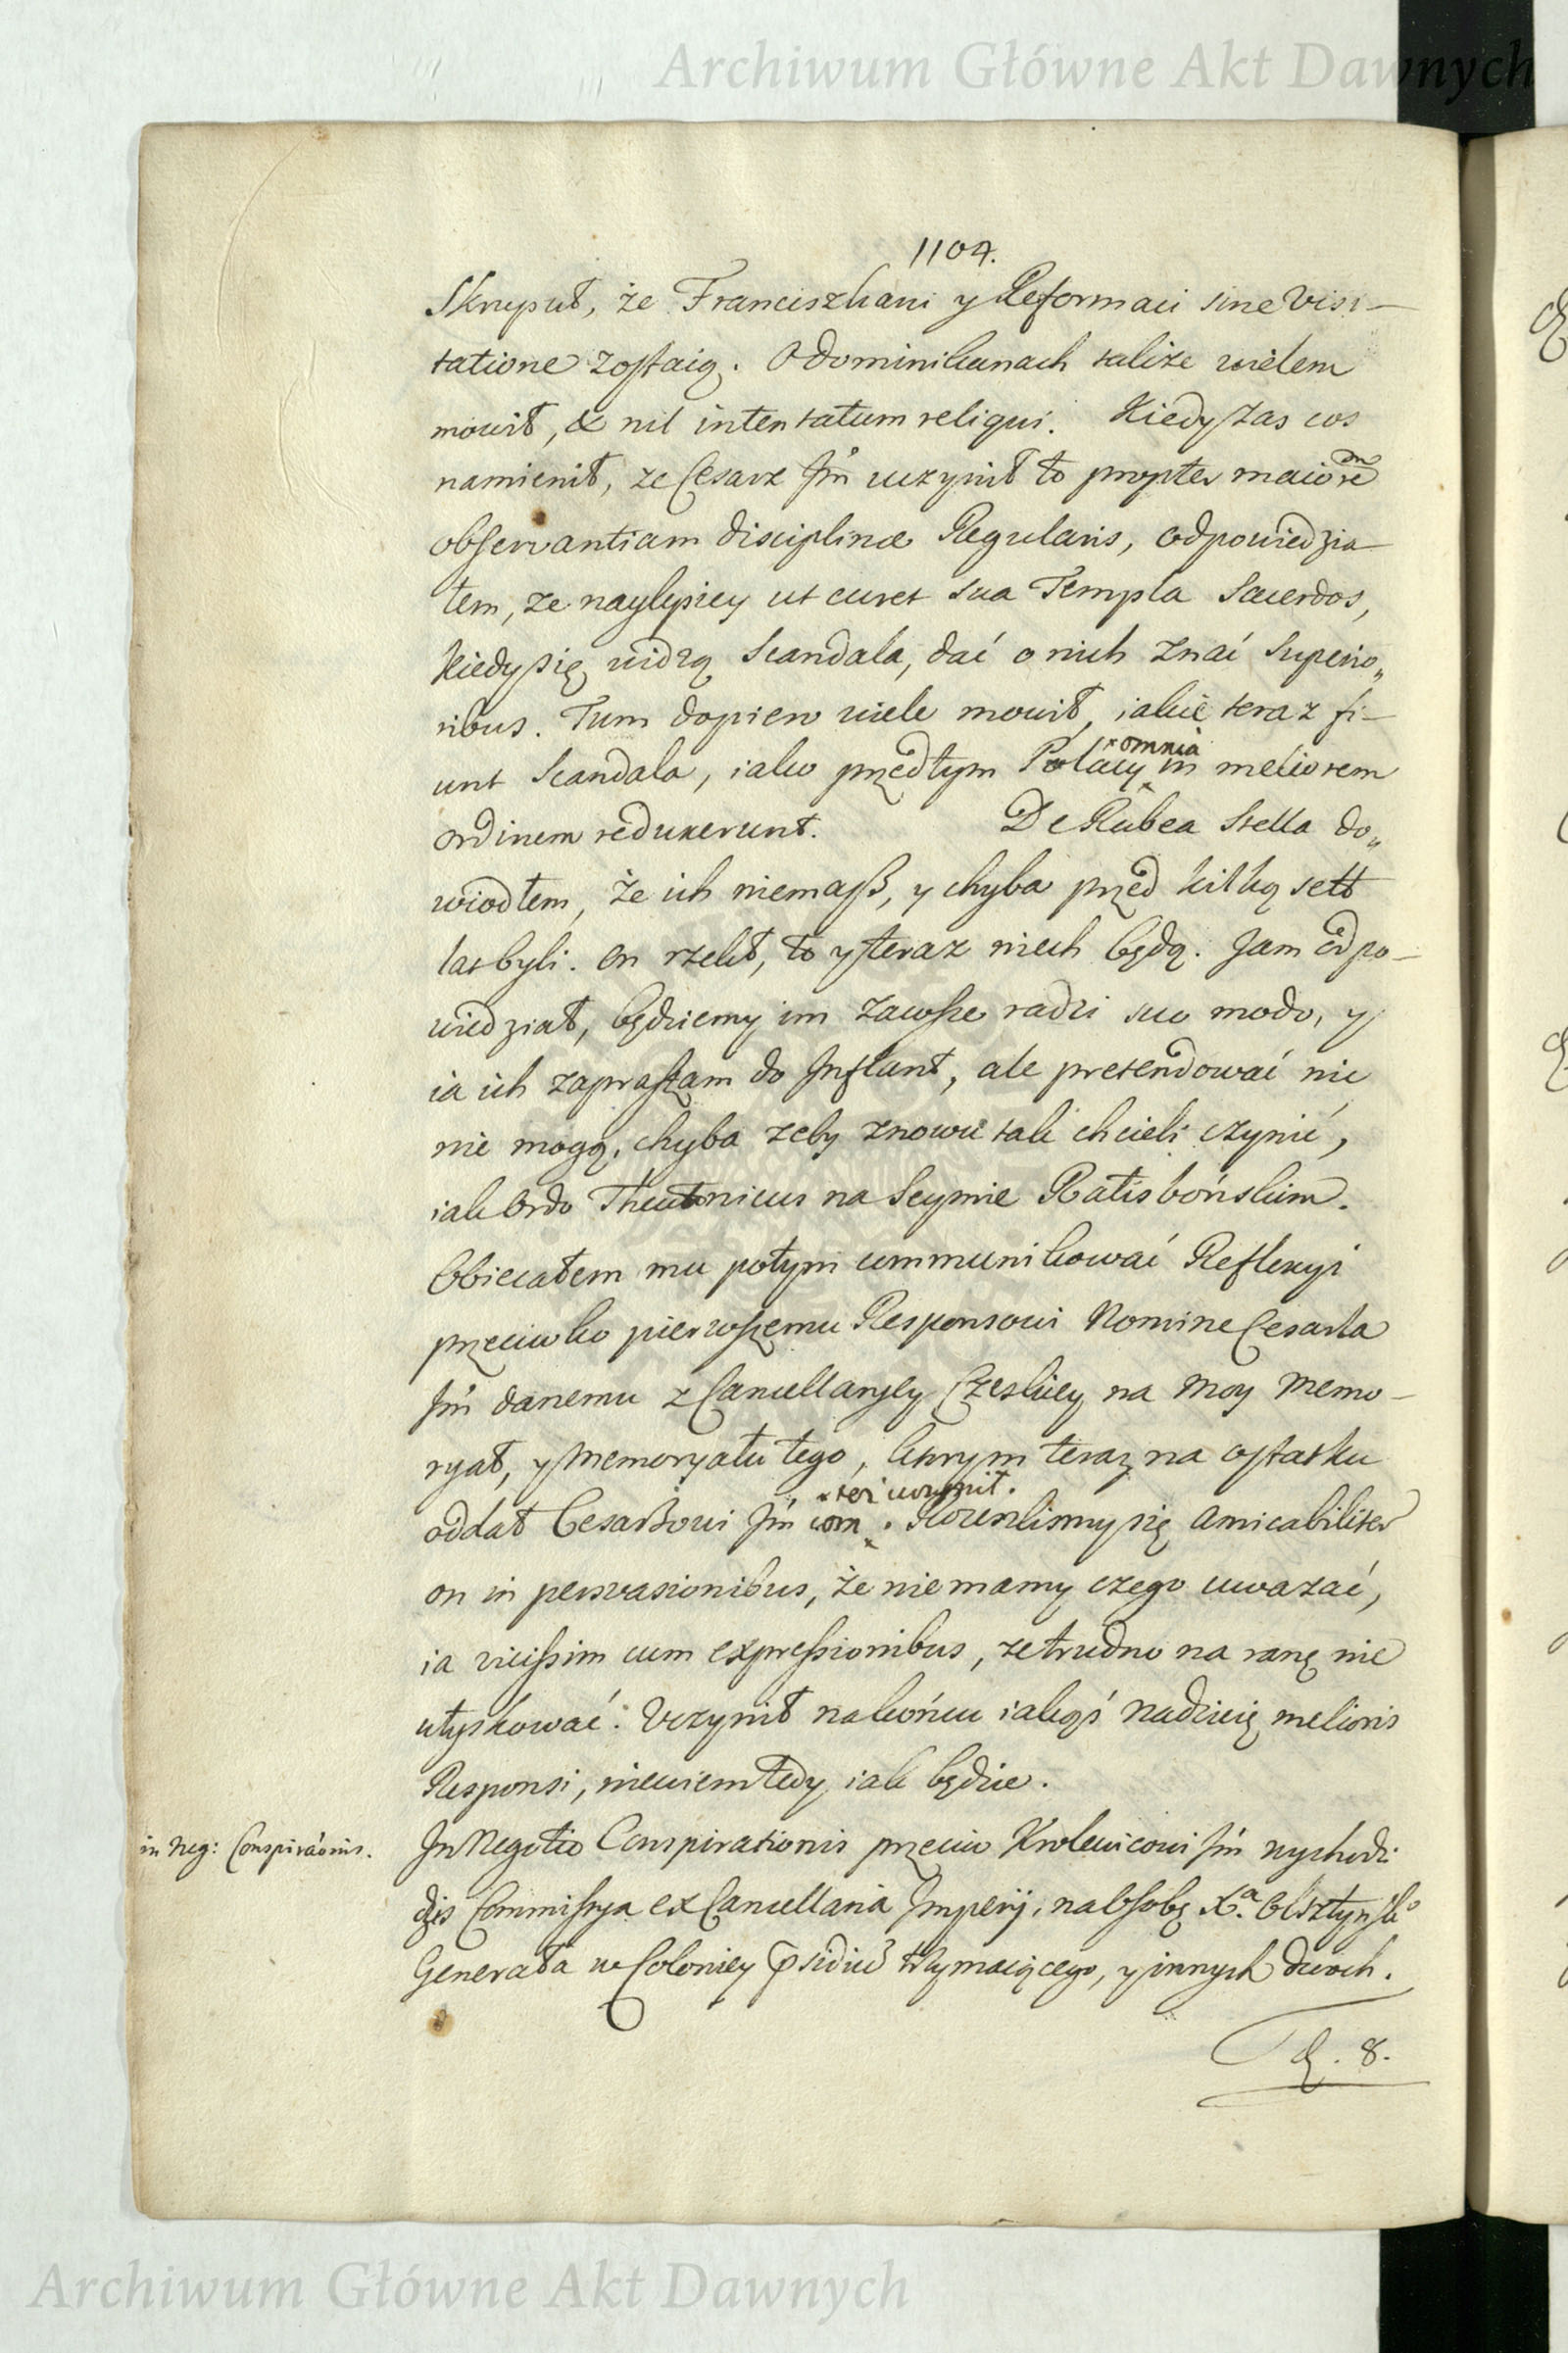 Archiwum Główne Akt Dawnych
1104.
Skrupuł, że Franciszkani y Reformaci sine Visi-
tatione zostaią. O dominikanach także wielem
mowił, & nil intentatum reliqui. Kiedy zas cos
namienił, ze Cesarz Jm̃ uczynił to propter maiorem
observantiam disciplinæ Regularis, odpowiedzia-
łem, ze naylepiey ut curet sua Templa Sacerdos,
kiedy się widzą Scandala, dać o nich znać Superio„
ribus. Tum dopiero wiele mowił, iakie teraz fi-
unt Scandala, iako przedtym Polacy omnia in meliorem
ordinem reduxerunt. De Rubea Stella do„
wiodłem, że ich niemaß, y chyba przed kilką sett
lat byli. On rzekł, to y teraz niech będą. Jam odpo-
wiedział, będziemy im zawsze radzi suo modo, y
ia ich zapraszam do Inflant, ale pretendować nic
nie mogą, chyba zeby znowu tak chcieli czynić,
iak Ordo Theutonicus na Seymie Ratisbońskim.
Obiecałem mu potym communikować Reflexyi
przeciwko pierwszemu Responsowi Nomine Cesarza
Jm̃ danemu z Cancellaryey Czeskiey na moy Memo-
ryał, y Memoryału tego, ktorym teraz na ostatku
oddał Cesarzowi Jm̃ com też uczynił. Rozeszlismy się amicabiliter
on in persvasionibus, że nie mamy czego uwazać,
ia vicissim cum expressionibus, ze trudno na ranę nie
utyskować. Uczynił na końcu iakąś nadzieię melioris
Responsi, niewiem tedy iak będzie.
in Neg: Conspiraõnis.
In Negotio Conspirationis przeciw Krolewicowi Jm̃ wychodzi
dzis Commissya ex Cancellaria Imperij, na Osobę Xa. Olsztynskio
Generała w Coloniey psidiũ trzymaiącego, y innych dwoch.
8.
Archiwum Główne Akt Dawnych